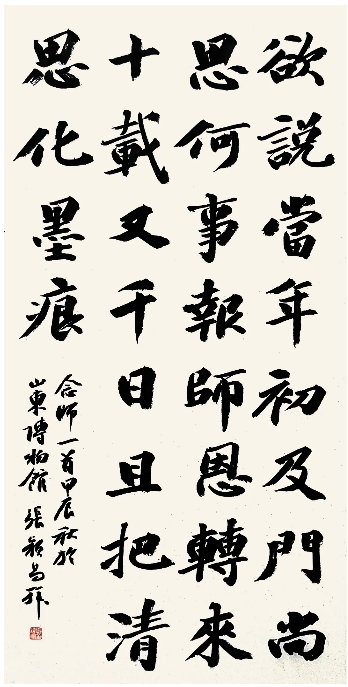 欲說當年初及門尚
思何事報師恩轉來
十載又千日且把清
思化墨痕
念師一首甲辰秋於
山東博物館 張